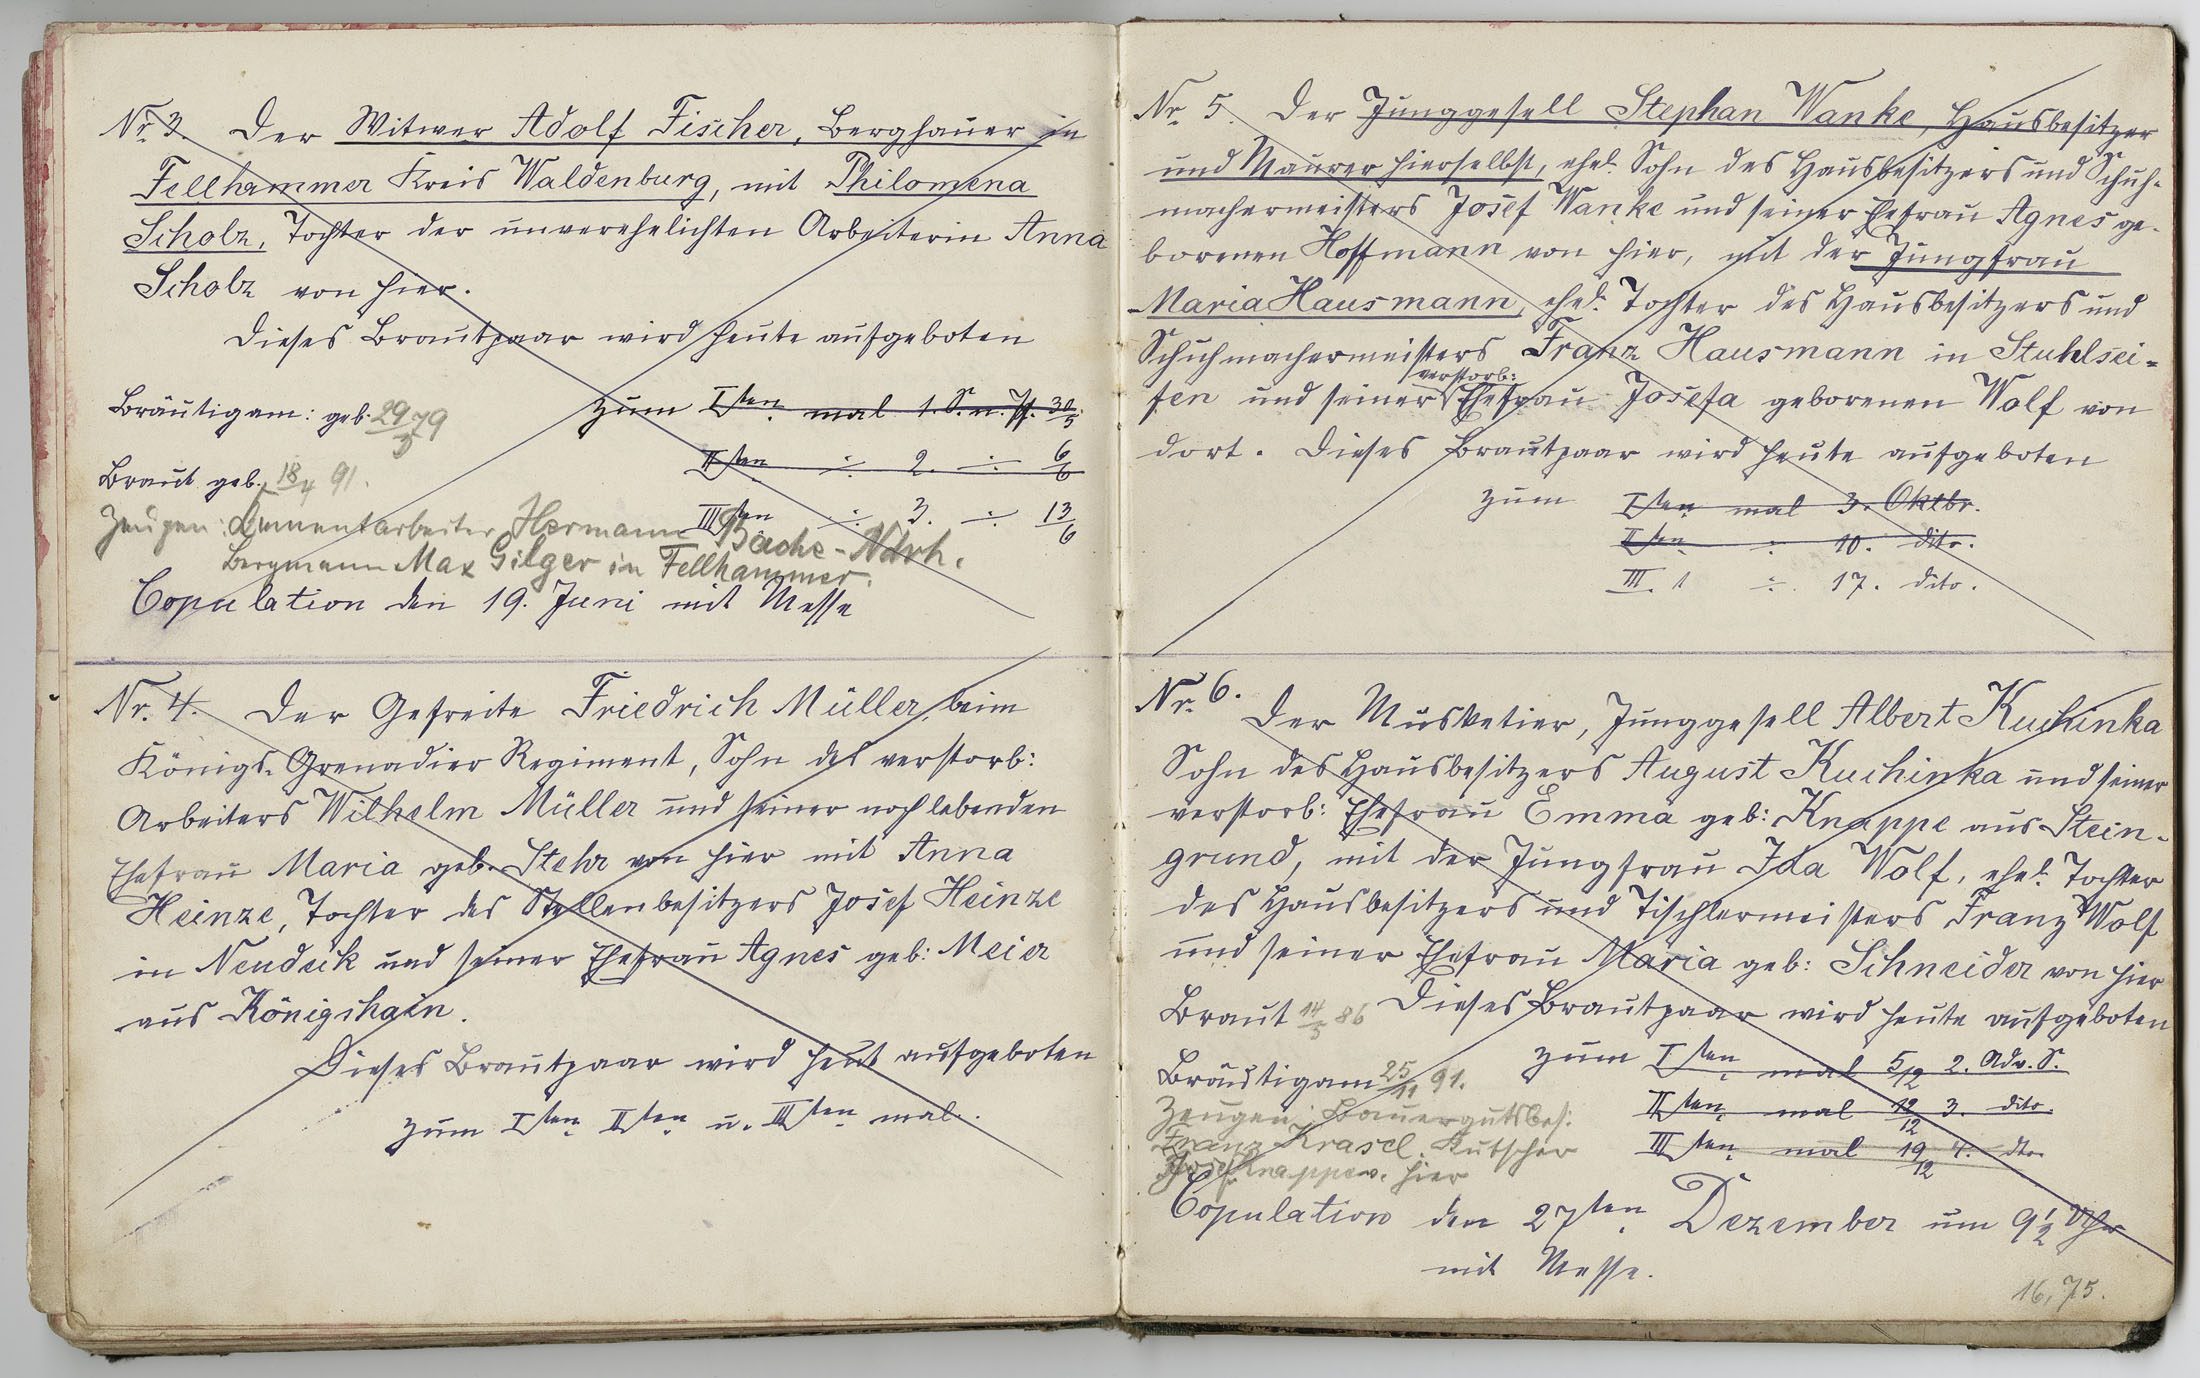 Nr. 3. Der Witwer Adolf Fischer, Berghauer in
Fellhammer Kreis Waldenburg, mit Philomena
Scholz, Tochter der unverehelichten Arbeiterin Anna
Scholz von hier.
Dieses Brautpaar wird heute aufgeboten
Bräutigam: geb. 29/3 79
zum Iten mal 1. S. n. Pf. 30/5
IIten ÷ 2. ÷ 6/6
Braut geb. 18/4 91.
IIIten ÷ 3. ÷ 13/6
Zeugen: Hermann Bache - Ndrh.
Bergmann Max Gilger in Fellhammer.
Copulation den 19. Juni mit Messe
Nr. 4. Der Gefreite Friedrich Müller, beim
Königs-Grenadier Regiment, Sohn des verstorb:
Arbeiters Wilhelm Müller und seiner noch lebenden
Ehefrau Maria geb. Stehr von hier mit Anna
Heinze, Tochter des Stellenbesitzers Josef Heinze
in Neudeck und seiner Ehefrau Agnes geb: Meier
aus Königshain.
Dieses Brautpaar wird heut aufgeboten
zum Iten IIten u. IIIten mal.
Nr. 5. Der Junggesell Stephan Wanke, Hausbesitzer
und Maurer hierselbst, ehel. Sohn des Hausbesitzers und Schuh-
machermeisters Josef Wanke und seiner Ehefrau Agnes ge-
borenen Hoffmann von hier, mit der Jungfrau
Maria Hausmann, ehel. Tochter des Hausbesitzers und
Schuhmachermeisters Franz Hausmann in Stuhlsei-
fen und seiner verstorb: Ehefrau Josefa geborenen Wolf von
dort. Dieses Brautpaar wird heute aufgeboten
zum Iten mal 3. Oktbr.
IIten ÷ 10. dito.
III. ÷ 17. dito.
Nr. 6.
Der Musketier, Junggesell Albert Kuchinka
Sohn des Hausbesitzers August Kuchinka und seiner
verstorb: Ehefrau Emma geb: Knappe aus Stein-
grund, mit der Jungfrau Ida Wolf, ehel. Tochter
des Hausbesitzers und Tischlermeisters Franz Wolf
und seiner Ehefrau Maria geb: Schneider von hier
Braut 14/5 86 Dieses Brautpaar wird heute aufgeboten
zum Iten mal 5/12 2. Adv. S.
Bräutigam 25/11 91.
IIten mal 12/12 3. dito.
Zeugen: Bauergutsbes:
Franz Krasel. Kutscher
IIIten mal 19/12 4. dto.
Josef Knappe v. hier
Copulation den 27ten Dezember um 9 1/2 Uhr
mit Messe.
16,75.